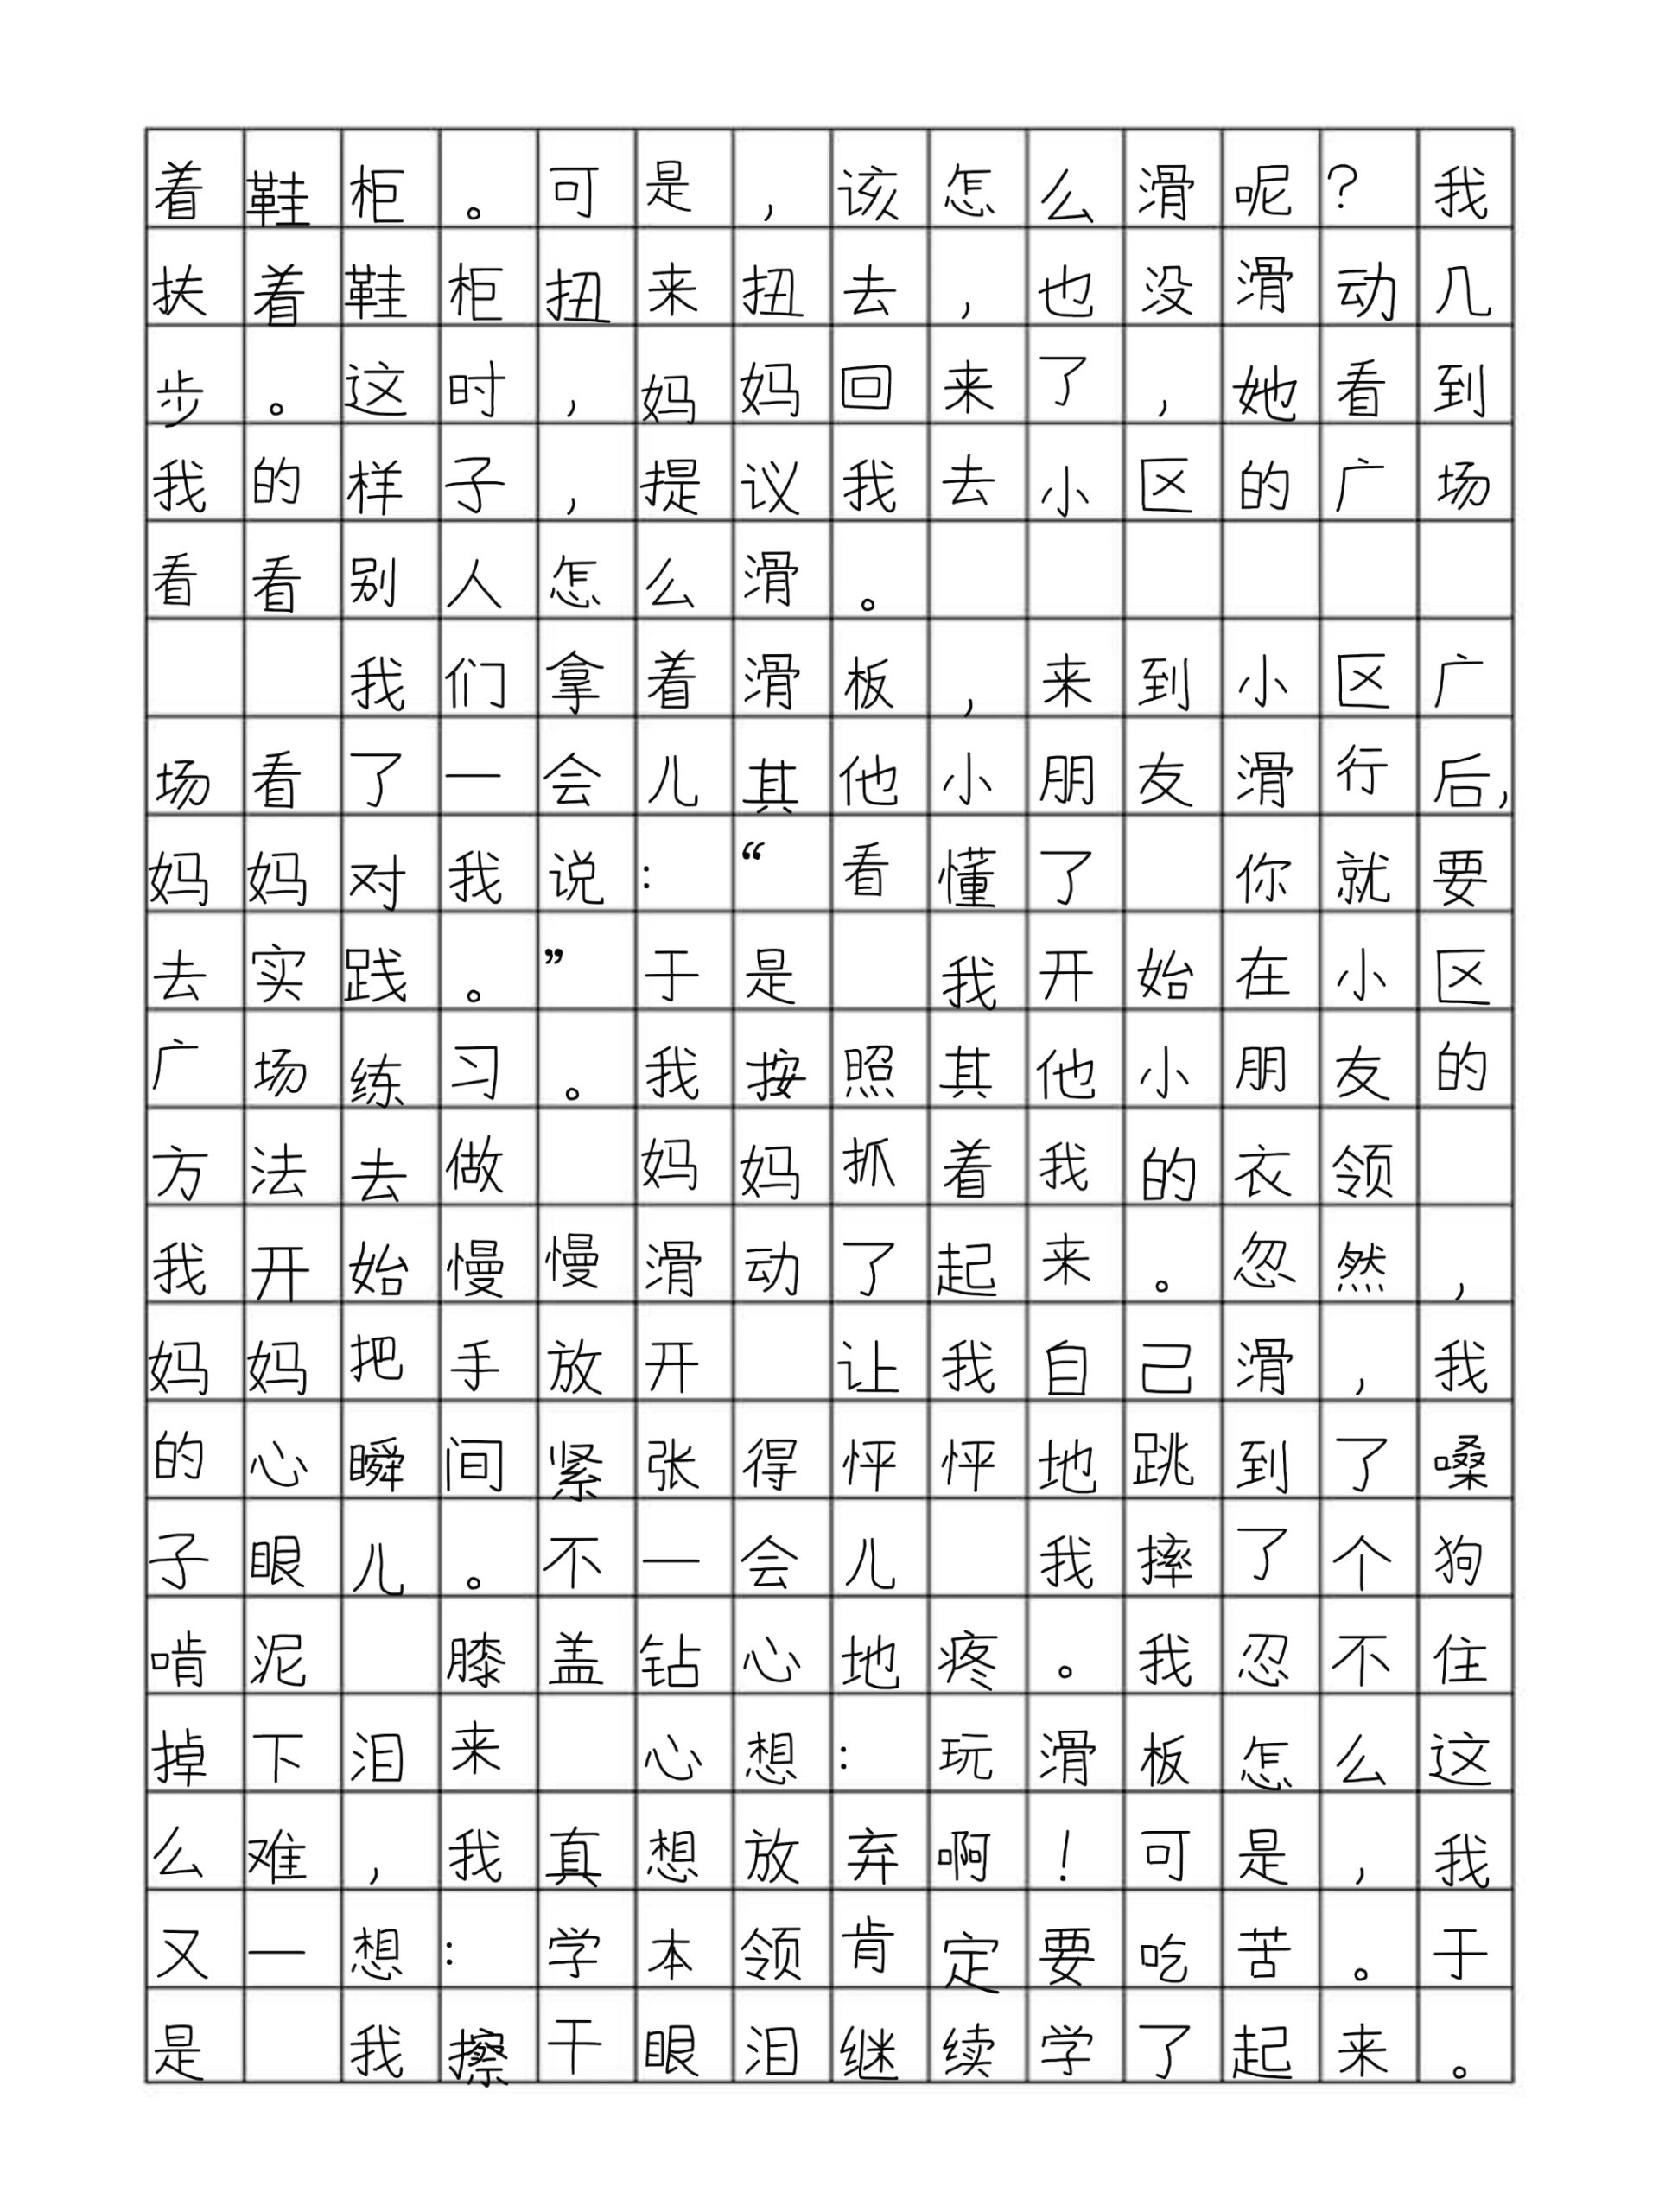 着鞋柜。可是，该怎么滑呢？我
扶着鞋柜扭来扭去，也没滑动几
步。这时，妈妈回来了，她看到
我的样子，提议我去小区的广场
看看别人怎么滑。
我们拿着滑板，来到小区广
场看了一会儿其他小朋友滑行后，
妈妈对我说：“看懂了 你就要
去实践。”于是 我开始在小区
广场练习。我按照其他小朋友的
方法去做 妈妈抓着我的衣领
我开始慢慢滑动了起来。忽然，
妈妈把手放开 让我自己滑，我
的心瞬间紧张得怦怦地跳到了嗓
子眼儿。不一会儿 我摔了个狗
啃泥 膝盖钻心地疼。我忍不住
掉下泪来 心想：玩滑板怎么这
么难，我真想放弃啊！可是，我
又一想：学本领肯定要吃苦。于
是 我擦干眼泪继续学了起来。